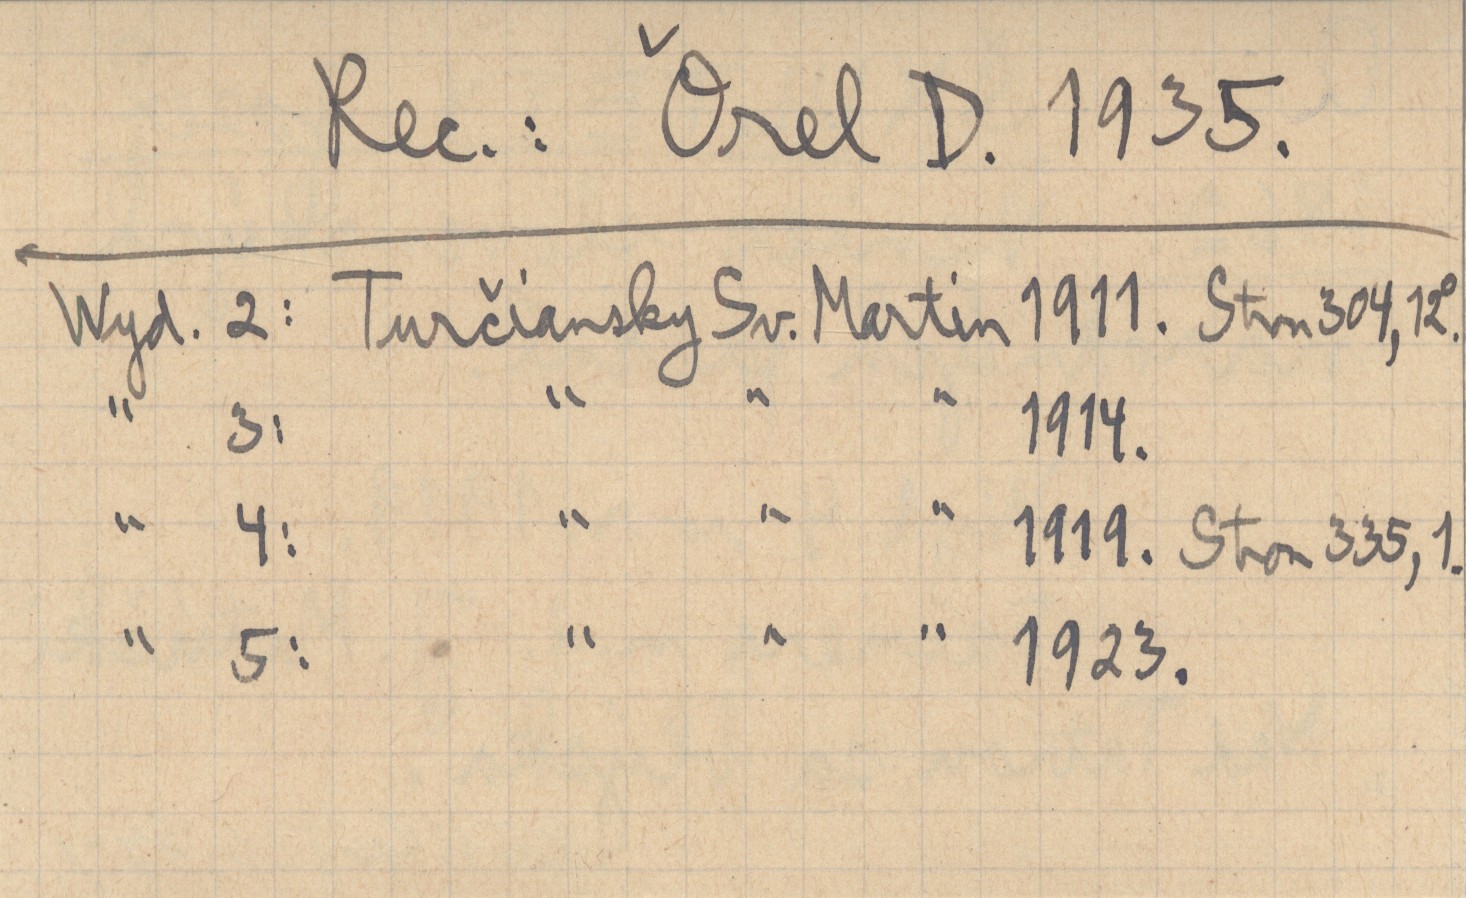 Rec.: Ǒrel D. 1935.
Wyd. 2: Turčiansky Sv. Martin 1911. Stron 304, 12º.
" 3: " " " 1914.
" 4: " " " 1919. Stron 335, 1.
" 5: " " " 1923.